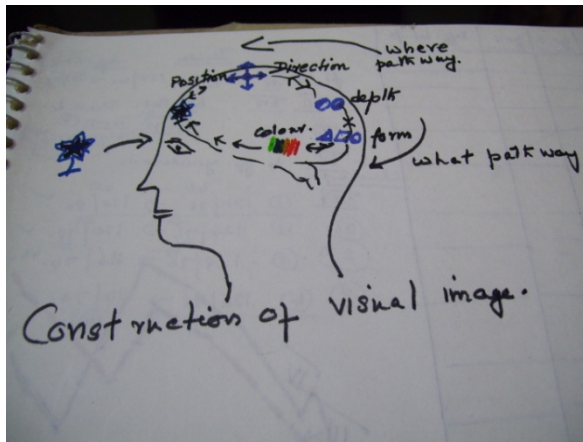 where
pathway.
Position
Direction
depth
Colour.
form
What pathway
Construction of visual image.